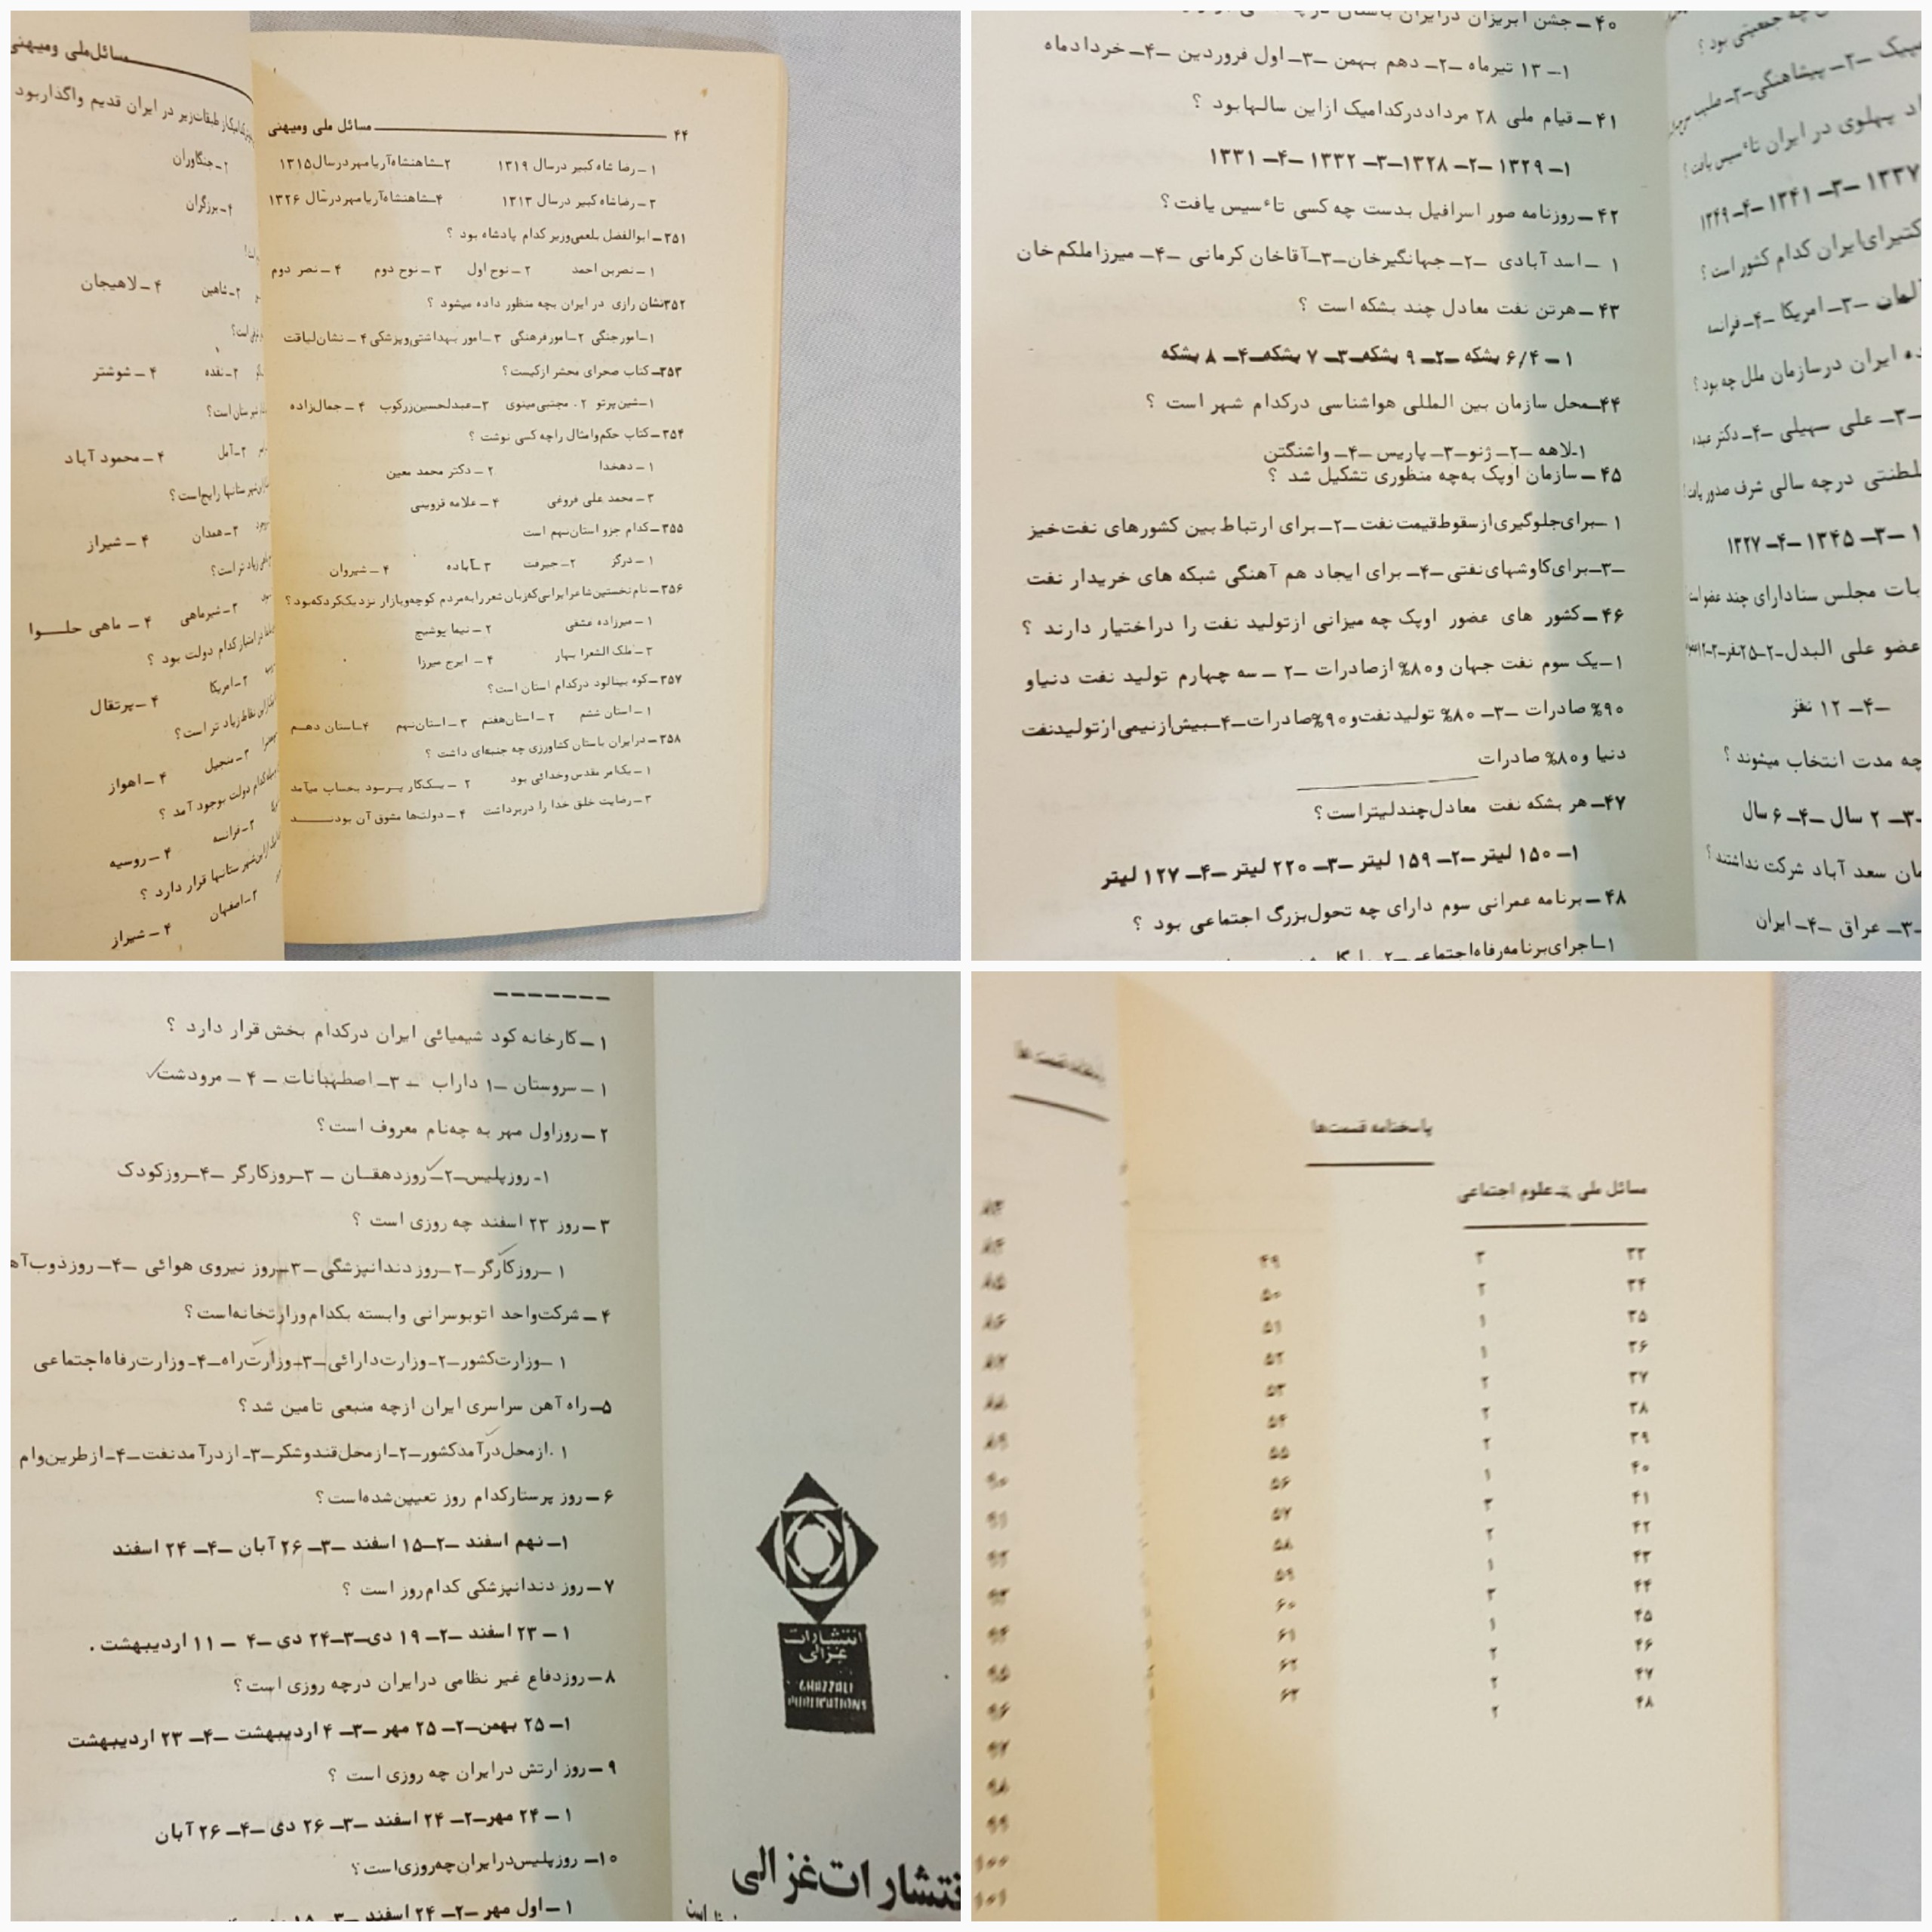 مسائل‌ملی ومیهنی
طبقات‌زیر در ایران قدیم واگذاربود
۲ـ جنگاوران
۴ـ برزگران
۲ـ شاهین ۴ ـ لاهیجان
۲ـ نقده ۴ ـ شوشتر
۲ـ آمل ۴ ـ محمود آباد
رایج‌است ؟
۲ـ همدان ۴ ـ شیراز
زیاد تر است؟
۲ـ شیرماهی ۴ ـ ماهی حلـــوا
کدام دولت بود ؟
۲ـ امریکا ۴ ـ پرتقال
زیاد تر است؟
۲ـ منجیل ۴ ـ اهواز
کدام دولت بوجود آمد ؟
۲ـ فرانسه ۴ ـ روسیه
قرار دارد ؟
۲ـ اصفهان ۴ ـ شیراز
۴۴ مسائل ملی ومیهنی
۱ ـ رضا شاه کبیر درسال ۱۳۱۹ ۲ـشاهنشاه‌آریامهردرسال۱۳۱۵
۳ ـ رضاشاه کبیر درسال ۱۳۱۳ ۴ـشاهنشاه‌آریامهردرسال ۱۳۲۶
۳۵۱ـ ابوالفضل بلعمی‌وزیر کدام پادشاه بود ؟
۱ ـ نصربن احمد ۲ ـ نوح اول ۳ ـ نوح دوم ۴ ـ نصر دوم
۳۵۲نشان رازی در ایران بچه منظور داده میشود ؟
۱ـامورجنگی ۲ـامورفرهنگی ۳ ـامور بهداشتی‌وپزشکی ۴ ـ نشان‌لیاقت
۳۵۳ـ کتاب صحرای محشر ازکیست؟
۱ـشین‌پرتو ۲ . مجتبی‌مینوی ۳ـعبدلحسین‌زرکوب ۴ ـ جمال‌زاده
۳۵۴ ـ کتاب حکم‌وامثال راچه کسی نوشت ؟
۱ ـ دهخدا ۲ ـ دکتر محمد معین
۳ ـ محمد علی فروغی ۴ ـ علامه قزوینی
۳۵۵ ـ کدام جزو استان‌نهم است
۱ ـ درگز ۲ ـ جیرفت ۳ ـآباده ۴ ـ شیروان
۳۵۶ ـ نام‌نخستین‌شاعرایرانی‌که‌زبان‌شعررابه‌مردم کوچه‌وبازار نزدیک‌کردکه‌بود؟
۱ ـ میرزاده عشقی ۲ ـ نیما یوشیج
۳ ـ ملک الشعرا بهار ۴ ـ ایرج میرزا
۳۵۷ ـ کوه بینالود درکدام استان است؟
۱ ـ استان ششم ۲ ـ استان‌هفتم ۳ ـ استان‌نهم ۴ـاستان دهـم
۳۵۸ ـ درایران باستان کشاورزی چه جنبه‌ای داشت ؟
۱ ـ یک‌امر مقدس وخدائی بود ۲ ـ یک‌کار پـرسود بحساب میآمد
۳ ـ رضایت خلق خدا را دربرداشت ۴ ـ دولت‌ها مشوق آن بودنــد
۴۰ ـ جشن آبریزان درایران باستان
۱ـ ۱۳ تیرماه ـ۲ـ دهم بهمن ـ۳ـ اول فروردین ـ۴ـ خردادماه
۴۱ ـ قیام ملی ۲۸ مرداددرکدامیک ازاین سالهابود ؟
۱ـ ۱۳۲۹ ـ۲ـ ۱۳۲۸ـ۳ـ ۱۳۳۲ ـ۴ـ ۱۳۳۱
۴۲ ـ روزنامه صور اسرافیل بدست چه کسی تاٴسیس یافت؟
۱ ـ اسد آبادی ـ۲ـ جهانگیرخان‌ـ۳ـآقاخان کرمانی ـ۴ـ میرزاملکم خان
۴۳ ـ هرتن نفت معادل چند بشکه است ؟
۱ ـ ۶/۴ بشکه ـ۲ـ ۹ بشکه‌ـ۳ـ ۷ بشکه‌ـ۴ـ ۸ بشکه
۴۴ـمحل سازمان بین المللی هواشناسی درکدام شهر است ؟
۱ـلاهه ـ۲ـ ژنو ـ۳ـ پاریس ـ۴ـ واشنگتن
۴۵ ـ سازمان اوپک به‌چه منظوری تشکیل شد ؟
۱ ـبرای‌جلوگیری‌ازسقوط‌قیمت‌نفت ـ۲ـ برای ارتباط بین کشورهای نفت‌خیز
ـ۳ـبرای‌کاوشهای‌نفتی ـ۴ـ برای ایجاد هم آهنگی شبکه های خریدار نفت
۴۶ ـ کشور های عضور اوپک چه میزانی ازتولید نفت را دراختیار دارند ؟
۱ـیک سوم نفت جهان و ۸۰% ازصادرات ـ۲ ـ سه چهارم تولید نفت دنیاو
۹۰% صادرات ـ۳ـ ۸۰% تولیدنفت‌و ۹۰%صادرات‌ـ۴ـبیش‌ازنیمی‌ازتولیدنفت
دنیا و ۸۰% صادرات
۴۷ـ هر بشکه نفت معادل‌چندلیتراست؟
۱ـ ۱۵۰ لیتر ـ۲ـ ۱۵۹ لیتر ـ۳ـ ۲۲۰ لیتر ـ۴ـ ۱۲۷ لیتر
۴۸ ـ برنامه عمرانی سوم دارای چه تحول‌بزرگ اجتماعی بود ؟
۱ـاجرای‌برنامه‌رفاه‌اجتماعی‌ـ۲ـ
چه جمعیتی بود ؟
ـ۲ـ پیشاهنگی ـ۳ـ
پهلوی در ایران تاٴسیس یافت؟
۱۳۳۷ ـ۳ـ ۱۳۴۱ ـ۴ـ ۱۳۴۹
ایران کدام کشور است ؟
آلمان ـ۳ـ امریکا ـ۴ـ فرانسه
ایران درسازمان ملل چه بود ؟
ـ۳ـ علی سهیلی ـ۴ـ دکتر عبده
درچه سالی شرف صدور یافت؟
۱ـ۳ـ ۱۳۴۵ ـ۴ـ ۱۳۲۷
مجلس سنادارای چند عضواست
عضو علی البدل ـ۲ـ ۲۵نفر
ـ۴ـ ۱۲ نفر
چه مدت انتخاب میشوند ؟
ـ۳ـ ۲ سال ـ۴ـ ۶ سال
سعد آباد شرکت نداشتند ؟
ـ۳ـ عراق ـ۴ـ ایران
۱ ـ کارخانه کود شیمیائی ایران درکدام بخش قرار دارد ؟
۱ ـ سروستان ـ۱ داراب ـ ۳ـ اصطهبانات ـ ۴ ـ مرودشت
۲ ـ روزاول مهر به چه‌نام معروف است؟
۱ـ روزپلیس‌ـ۲ـ روزدهقـان ـ ۳ـروزکارگر ـ۴ـروزکودک
۳ ـ روز ۲۳ اسفند چه روزی است ؟
۱ ـروزکارگر ـ۲ـ روزدندانپزشگی ـ۳ـروز نیروی هوائی ـ۴ـ روزذوب‌آه
۴ ـ شرکت‌واحد اتوبوسرانی وابسته بکدام‌وزارتخانه‌است؟
۱ ـوزارت‌کشور ـ۲ـ وزارت‌دارائی‌ـ۳ـوزارت‌راه‌ـ۴ـ وزارت‌رفاه‌اجتماعی
۵ـ راه آهن سراسری ایران ازچه منبعی تامین شد ؟
۱ .ازمحل‌درآمدکشور ـ۲ـ ازمحل‌قندوشکر ـ۳ـ ازدرآمدنفت‌ـ۴ـ ازطرین‌وام
۶ ـ روز پرستارکدام روز تعیین‌شده‌است؟
۱ـ نهم اسفند ـ۲ـ۱۵ اسفند ـ۳ـ ۲۶ آبان ـ۴ـ ۲۴ اسفند
۷ ـ روز دندانپزشکی کدام‌روز است ؟
۱ ـ ۲۳ اسفند ـ۲ـ ۱۹ دی‌ـ۳ـ۲۴ دی ـ۴ ـ ۱۱ اردیبهشت .
۸ ـ روزدفاع غیر نظامی درایران درچه روزی است؟
۱ـ ۲۵ بهمن‌ـ۲ـ ۲۵ مهر ـ۳ـ ۴ اردیبهشت ـ۴ـ ۲۳ اردیبهشت
۹ ـ روز ارتش درایران چه روزی است ؟
۱ ـ ۲۴ مهر‌ـ۲ـ ۲۴ اسفند ـ۳ـ ۲۶ دی ـ۴ـ ۲۶ آبان
۱۰ـ روزپلیس‌درایران‌چه‌روزی‌است؟
۱ ـ اول مهر ـ۲ـ ۲۴ اسفند ـ۳ـ ۱۵
انتشارات
غزالی
GHAZZALI
PUBLICATIONS
نتشارات‌غزالی
پاسخنامه قسمت‌ها
مسائل ملی ـ علوم اجتماعی
۳۳ ۳ ۴۹
۳۴ ۲ ۵۰
۳۵ ۱ ۵۱
۳۶ ۱ ۵۲
۳۷ ۲ ۵۳
۳۸ ۲ ۵۴
۳۹ ۲ ۵۵
۴۰ ۱ ۵۶
۴۱ ۳ ۵۷
۴۲ ۲ ۵۸
۴۳ ۱ ۵۹
۴۴ ۳ ۶۰
۴۵ ۱ ۶۱
۴۶ ۲ ۶۲
۴۷ ۲ ۶۳
۴۸ ۲
۸۳
۸۴
۸۵
۸۶
۸۷
۸۸
۸۹
۹۰
۹۱
۹۲
۹۳
۹۴
۹۵
۹۶
۹۷
۹۸
۹۹
۱۰۰
۱۰۱